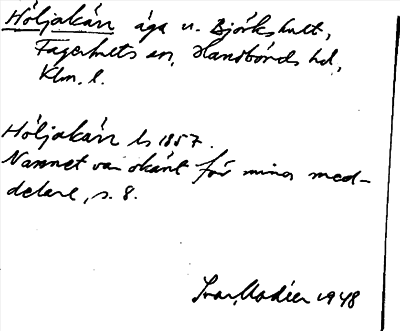 Höljakärr äga u. Björkshult,
Fagerhults sn, Handbörds hd,
Klm. l.
Höljakärr ls 1857.
Namnet var okänt för mina med-
delare, s. 8.
Ivar Modéer 1948